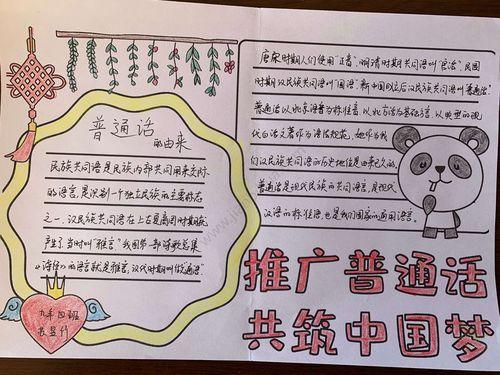 普通话
的由来
民族共同语是民族内部共同用来交际
的语言,是识别一个独立民族的主要标志
之一。汉民族共同语在上古夏商周时期就
产生了当时叫“雅言”我国第一部诗歌总集
《诗经》的语言就是雅言,汉代时期叫做“通语”
唐宋时期人们使用“正音”.明清时期共同语叫“官话”.民国
时期汉民族共同语叫“国语”.新中国成立后汉民族共同语叫“普通话”
普通话以北京语音为标准音.以北方话为基础方言.以典范的现
代白话文著作为语法规范。
们汉民族共同语的历史地位是由来已久的,
普通话是现代汉民族的共同语言,是现代
汉语的标准语,也是我们国家的通用语言。
九年四班
推广普通话
共筑中国梦